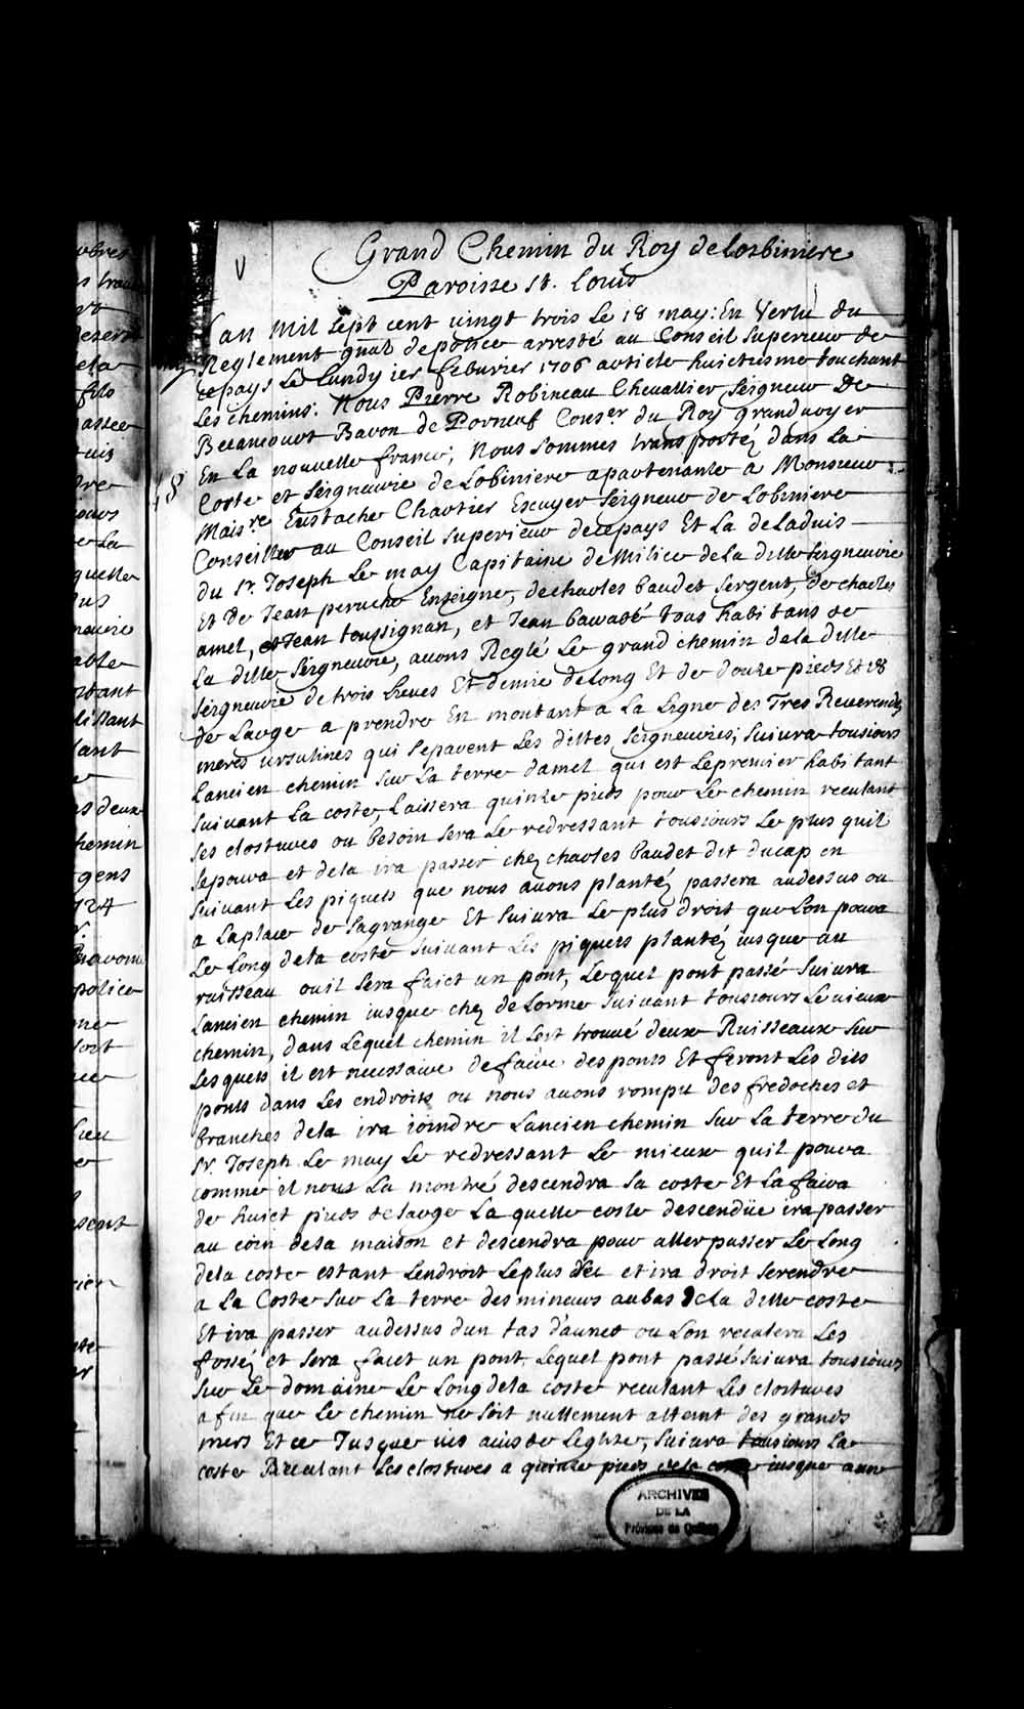 Grand Chemin du Roy de Losbiniere
Paroisse St. Louis
Lan Mil sept cent vingt trois Le 18 may: En Vertu du
Reglement gnal de police arresté au Conseil superieur de
cepays Le Lundy ier febuvrier 1706 article huictiesme touchant
Les chemins: Nous Pierre Robineau Chevallier Seigneur De
Becancourt Baron de Porneuf Conser du Roy grand voyer
En La nouvelle france, Nous sommes transportéz dans la
18 Coste et Seigneurie de Lobiniere apartenante a Monsieur
Maisre Eustache Chartier Escuyer Seigneur de Lobiniere
Conseiller au Conseil Superieur decepays Et La de Laduis
du Sr. Joseph Le may Capitaine de Milice dela ditte Seigneurie
Et de Jean peruche Enseigne, de charles baudet Sergent, de charles
amel, et Jean toussignan, et Jean bawadé tous habitans de
La ditte Seigneurie, avons Reglé Le grand chemin dela ditte
Seigneurie de trois Lieues Et demie de Long Et de douze pieds Et 18
de Large a prendre En montant a La Ligne des Tres Reverendes
meres ursulines qui separent Les dittes Seigneuries; suivra tousiours
Lancien chemin sur La terre damel qui est Lepremier habitant
suivant La coste, Laissera quinze pieds pour Le chemin reculant
ses clostures ou besoin sera Le redressant tousiours Le plus quil
sepoura et dela ira passer chez charles baudet dit ducap en
suivant Les piquets que nous avons plantéz passera audessus ou
a Laplace de sagrange Et suivra Le plus droit que Lon poura
Le Long dela coste suivant Les piquets plantéz iusque au
ruisseau ou il sera faict un pont, Lequel pont passé suivra
Lancien chemin iusque chez de Lorme suivant tousiours Le vieux
chemin, dans Lequel chemin il sest trouvé deux Ruisseaux sur
Lesquels il est necessaire de faire des ponts Et feront Les dits
ponts dans Les endroits ou nous avons rompu des fredoches et
branches dela ira ioindre Lancien chemin sur La terre du
Sr. Joseph Le may Le redressant Le mieux quil poura
comme il nous La montré descendra sa coste Et La faira
de huict pieds de Large La quelle coste descendüe ira passer
au coin desa maison et descendra pour aller passer Le Long
dela coste estant Lendroit Leplus sec et ira droit serendre
a La Coste sur La terre des mineurs aubas dela ditte coste
Et ira passer audessus dun tas d'aunes ou Lon reculera Les
fosséz et sera faict un pont, Lequel pont passé suivra tousiours
sur Le domaine Le Long dela coste reculant Les clostures
afin que Le chemin ne soit nullement atteint des grands
mers Et ce Jusque vis avis de Leglize, suivra tousiours La
coste Reculant Les clostures a quinze pieds dela coste iusque aune
ARCHIVES
DE LA
Province de Québec